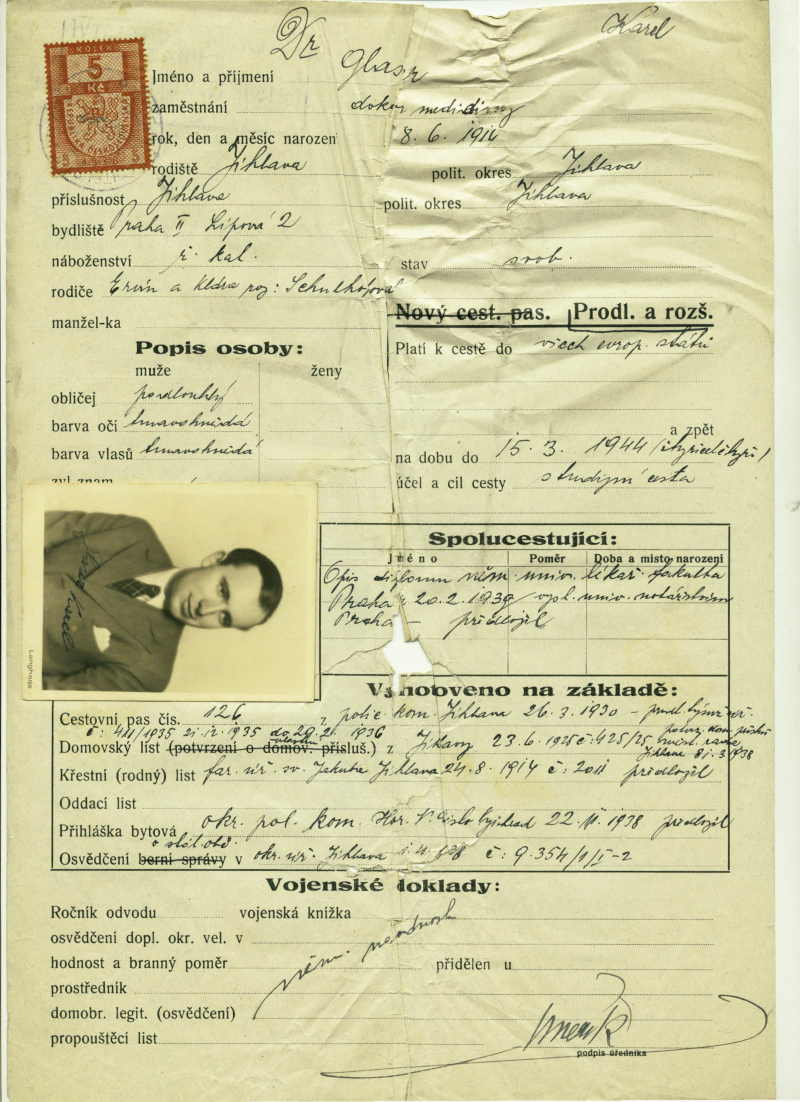 Dr Karel
KOLEK
5
Kč
Jméno a příjmení Glaser
zaměstnání doktor medicíny
rok, den a měsíc narozen 8. 6. 1914
rodiště Jihlava polit. okres Jihlava
příslušnost Jihlava polit. okres Jihlava
bydliště Praha II Lípová 2
náboženství ř. kat. stav svob.
rodiče Ervín a roz: Schulhofová
manžel-ka
Nový cest. pas. Prodl. a rozš.
Platí k cestě do všech evrop. států
a zpět
na dobu do 15. 3. 1944
účel a cíl cesty studijní cesta
Popis osoby:
muže ženy
obličej podlouhlý
barva očí tmavohnědá
barva vlasů tmavohnědá
zvl. znam.
Langhans
Spolucestující:
Jméno Poměr Doba a místo narození
Opis diplomu něm. univ. lékař. fakulta
Praha 20. 2. 1939 univ. notářstvím
Praha - předložil
Vyhotoveno na základě:
Cestovní pas čís. 126 z polic. kom. Jihlava 26. 3. 1930
č: 411/1935 1935 do 1936
Domovský list (potvrzení o domov. přísluš.) z Jihlavy 23. 6. 1925 č: 425/25
Jihlava 1938
Křestní (rodný) list far. úř. sv. Jakuba Jihlava 24. 8. 1914 č: předložil
Oddací list
Přihláška bytová okr. pol. kom. 22. 1938 předložil
o stát. obč.
Osvědčení berní správy v okr. úř. Jihlava č: 9.354/1/I-2
Vojenské doklady:
Ročník odvodu vojenská knížka
osvědčení dopl. okr. vel. v
hodnost a branný poměr přidělen u
něm. národnost
prostředník
domobr. legit. (osvědčení)
propouštěcí list
podpis úředníka